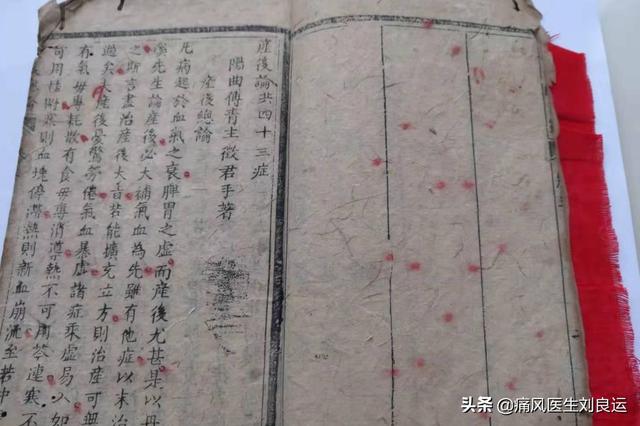 產後論共四十三症
陽曲傅青主徵君手著
產後總論
凡病起於血氣之衰脾胃之虛而產後尤甚是以丹
溪先生論產後必大補氣血為先雖有他症以末治
之斯言盡治產後大旨若能擴充立方則治產可無
過矣夫產後憂驚勞倦氣血暴虛諸症乘虛易入如
有氣毋專耗散有食毋專消導熱不可用芩連寒不
可用桂附寒則血塊停滯熱則新血崩流至若中
头条 @痛风医生刘良运